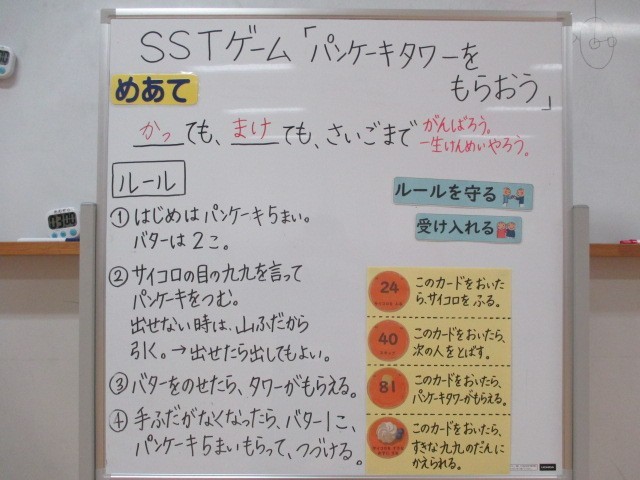 SSTゲーム「パンケーキタワーを
もらおう」
めあて
かっても、まけても、さいごまで がんばろう。
一生けんめいやろう。
ルール
ルールを守る
受け入れる
① はじめはパンケーキ5まい。
バターは2こ。
② サイコロの目の九九を言って
パンケーキをつむ。
出せない時は、山ふだから
引く。→出せたら出してもよい。
③ バターをのせたら、タワーがもらえる。
④ 手ふだがなくなったら、バター1こ、
パンケーキ5まいもらって、つづける。
24
このカードをおいた
ら、サイコロをふる。
40
このカードをおいたら、
次の人をとばす。
81
このカードをおいたら、
パンケーキタワーがもらえる。
このカードをおいたら、
すきな九九のだんに
かえられる。